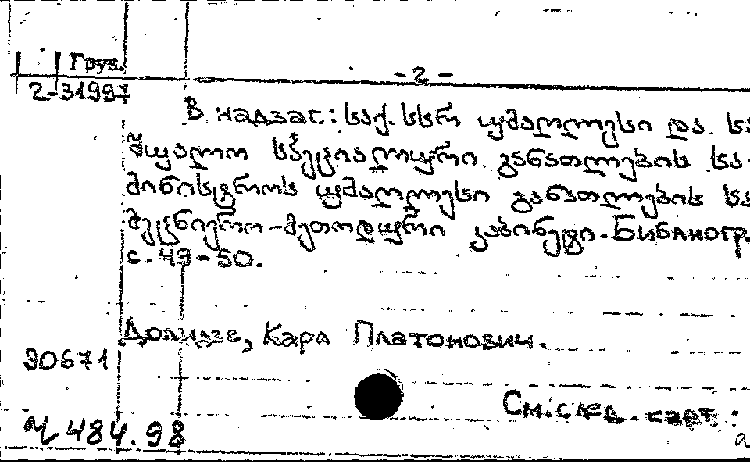 Груз.
- 2 -
2-31997
В надзаг.: საქ. სსრ უმაღლესი და სა
შუალო სპეციალური განათლების სა-
მინისტროს უმაღლესი განათლების სა
მეცნიერო-მეთოდური კაბინეტი.-Библиогр.
с. 49-50.
Долидзе, Карл Платонович.
90671
484.98
См. след. карт.: